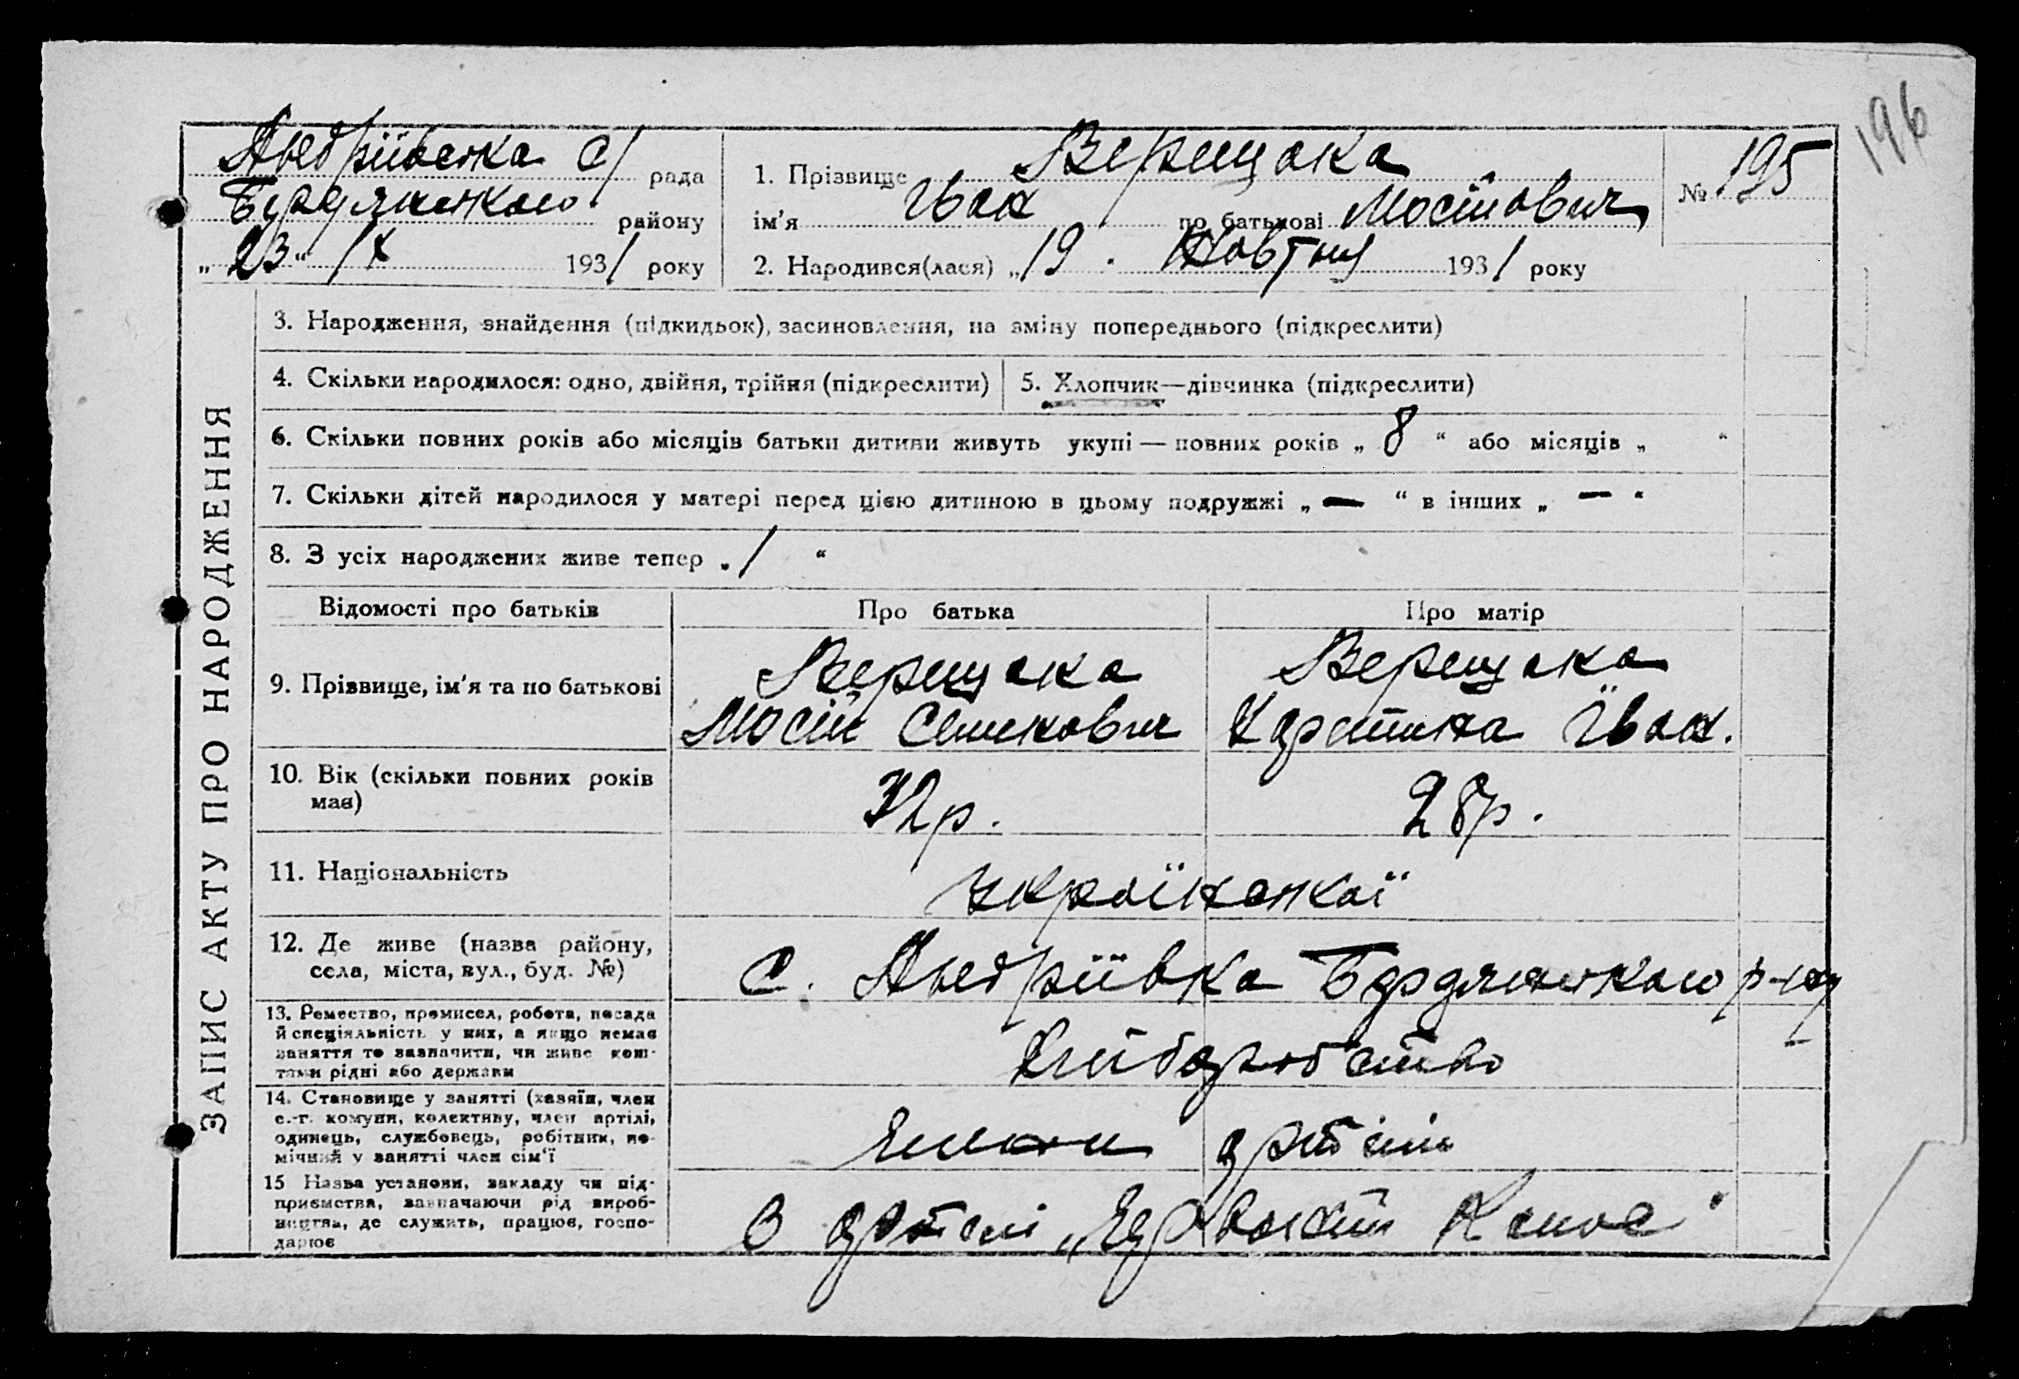 196
Андріївська с/ рада
Бердянського району
„23“ ІХ 1931 року
1. Прізвище Верещака
ім'я Іван по батькові Мосійович
2. Народився(лася) „19. Жовтня 1931 року
№ 195
ЗАПИС АКТУ ПРО НАРОДЖЕННЯ
3. Народження, знайдення (підкидьок), засиновлення, на зміну попереднього (підкреслити)
4. Скільки народилося: одно, двійня, трійня (підкреслити)
5. Хлопчик—дівчинка (підкреслити)
6. Скільки повних років або місяців батьки дитини живуть укупі — повних років „ 8 “ або місяців „ “
7. Скільки дітей народилося у матері перед цією дитиною в цьому подружжі „ — “ в інших „ — “
8. З усіх народжених живе тепер „ 1 “
Відомості про батьків
Про батька
Про матір
9. Прізвище, ім'я та по батькові
Верещака
Мосій Семенович
Верещака
Катерина Іван.
10. Вік (скільки повних років
має)
32р.
28р.
11. Національність
української
12. Де живе (назва району,
села, міста, вул., буд. №)
С. Андріївка Бердянського р-ну
13. Ремество, промисел, робота, посада
й спеціяльність у них, а якщо немає
заняття то зазначити, чи живе кош-
тами рідні або держави
Хліборобство
14. Становище у занятті (хазяїн, член
с.-г. комуни, колективу, член артілі,
одинець, службовець, робітник, по-
мічний у занятті член сім'ї
Члени артілі
15 Назва установи, закладу чи під-
приємства, зазначаючи рід вироб-
ництва, де служить, працює, госпо-
дарює
В артілі „Червоний